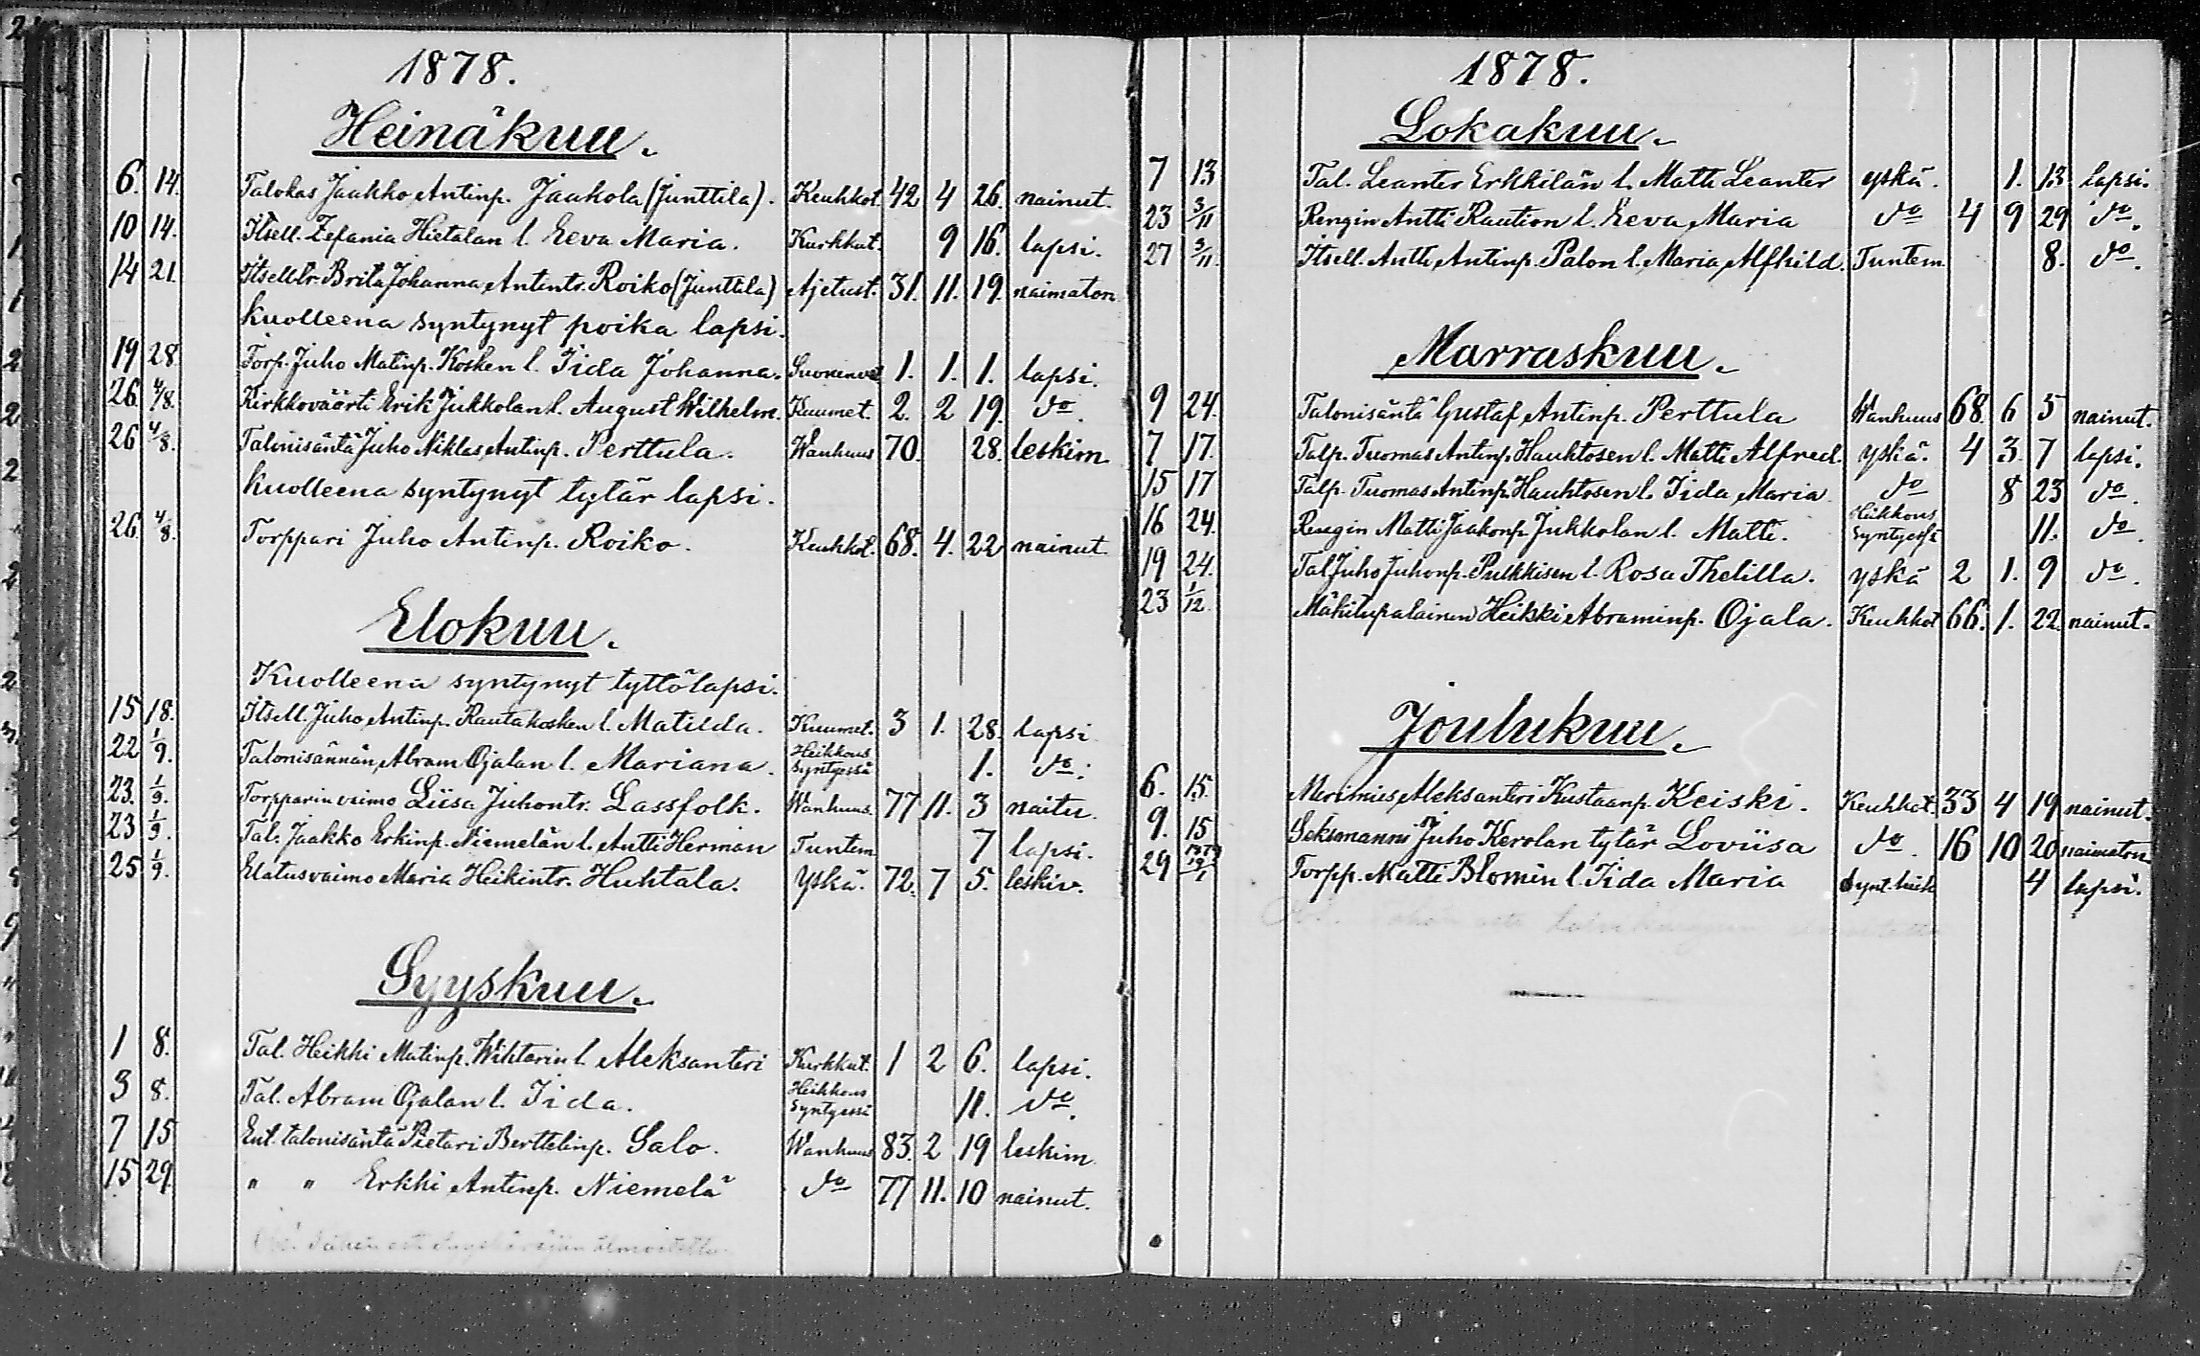 1878.
Heinäkuu.
6. 14. Talokas Jaakko Antinp. Jaakola (Junttila). Keuhkot. 42 4 26. nainut.
10 14. Itsell. Zefania Hietalan l. Eeva Maria. Kurkkut. 9 16. lapsi.
14 21. Itselltr. Brita Johanna Antintr. Roiko (Junttila) Ajetust. 31. 11. 19. naimaton
kuolleena syntynyt poika lapsi.
19 28 Torp. Juho Matinp. Kosken l. Iida Johanna. Suonenvet 1. 1. 1. lapsi.
26. 4/8. Kirkkoväärti Erik Jukkolan l. August Wilhelm. Kuumet. 2. 2 19. do.
26 4/8. Talonisäntä Juho Niklas Antinp. Perttula. Wanhuus 70. 28. leskim.
kuolleena syntynyt tytär lapsi.
26. 4/8. Torppari Juho Antinp. Roiko. Keuhkot. 68. 4. 22 nainut.
Elokuu.
Kuolleena syntynyt tyttölapsi.
15 18. Itsell. Juho Antinp. Rautakosken l. Matilda. Kuumet. 3 1. 28. lapsi
22 1/9. Talonisännän Abram Ojalan l. Mariana. Heikkous syntyessä 1. do.
23. 1/9. Torpparin vaimo Liisa Juhontr. Lassfolk. Wanhuus. 77 11. 3 naitu.
23 1/9. Tal. Jaakko Erkinp. Niemelän l. Antti Herman Tuntem 7 lapsi.
25 1/9. Elatusvaimo Maria Heikintr. Huhtala. Yskä. 72. 7 5. leskiv.
Syyskuu.
1 8. Tal. Heikki Matinp. Wihterin l. Aleksanteri Kurkkut. 1 2 6. lapsi.
3 8. Tal. Abram Ojalan l. Iida. Heikkous syntyessä 11. do.
7 15 Ent. talonisäntä Pietari Berttelinp. Salo. Wanhuus 83. 2 19 leskim.
15 29. " " Erkki Antinp. Niemelä do 77 11. 10 nainut.
1878.
Lokakuu.
7 13 Tal. Leanter Erkkilän l. Matti Leanter yskä. 1. 13 lapsi.
23 3/11 Rengin Antti Raution l. Eeva Maria do 4 9 29 do.
27 3/11. Itsell. Antti Antinp. Palon l. Maria Alfhild. Tuntem. 8. do.
Marraskuu.
9 24. Talonisäntä Gustaf Antinp. Perttula Wanhuus 68. 6 5 nainut.
7 17. Talp. Tuomas Antinp. Hauhtosen l. Matti Alfred. yskä. 4 3. 7 lapsi.
15 17 Talp. Tuomas Antinp. Hauhtosen l. Iida Maria do 8 23 do.
16 24. Rengin Matti Jaakonp. Jukkolan l. Matti. Heikkous syntyess. 11. do.
19 24. Tal Juho Juhonp. Pulkkisen l. Rosa Thelilla. yskä 2 1. 9 do.
23 1/12. Mäkitupalainen Heikki Abraminp. Ojala. Keuhkot 66. 1. 22. nainut.
Joulukuu.
6. 15. Merimies Aleksanteri Kustaanp. Keiski. Keuhkot. 33 4 19 nainut.
9. 15 Seksmanni Juho Kerolan tytär Loviisa do. 16 10 20 naimaton
29 Torpp. Matti Blomin l. Iida Maria Synt. heik 4 lapsi.